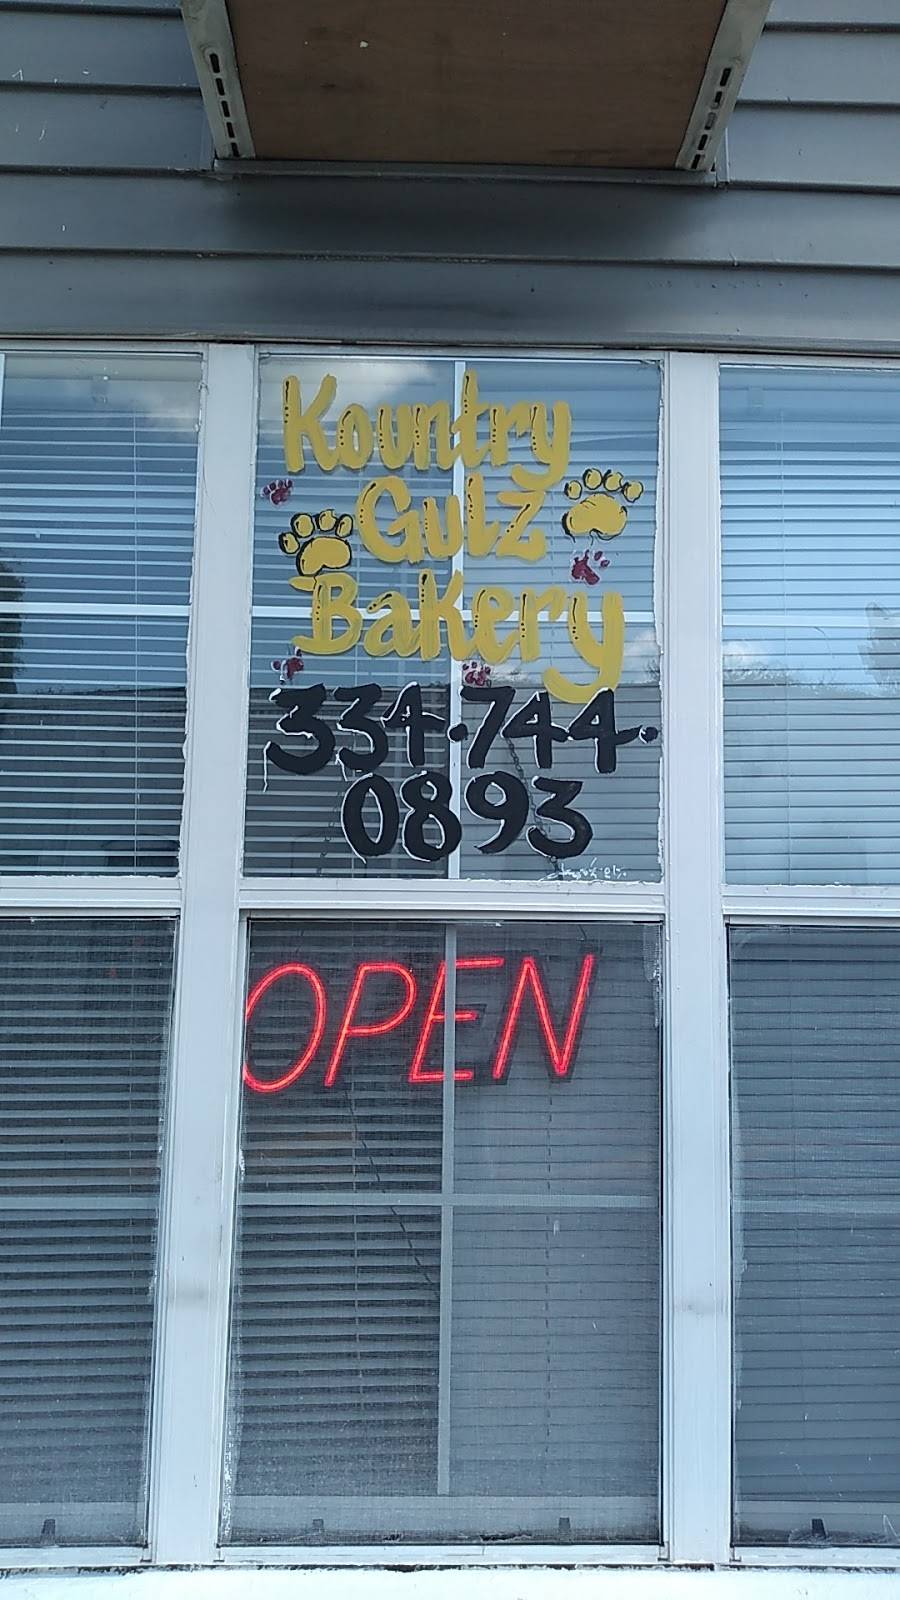 Kountry
Gulz
Bakery
334-744-
0893
OPEN